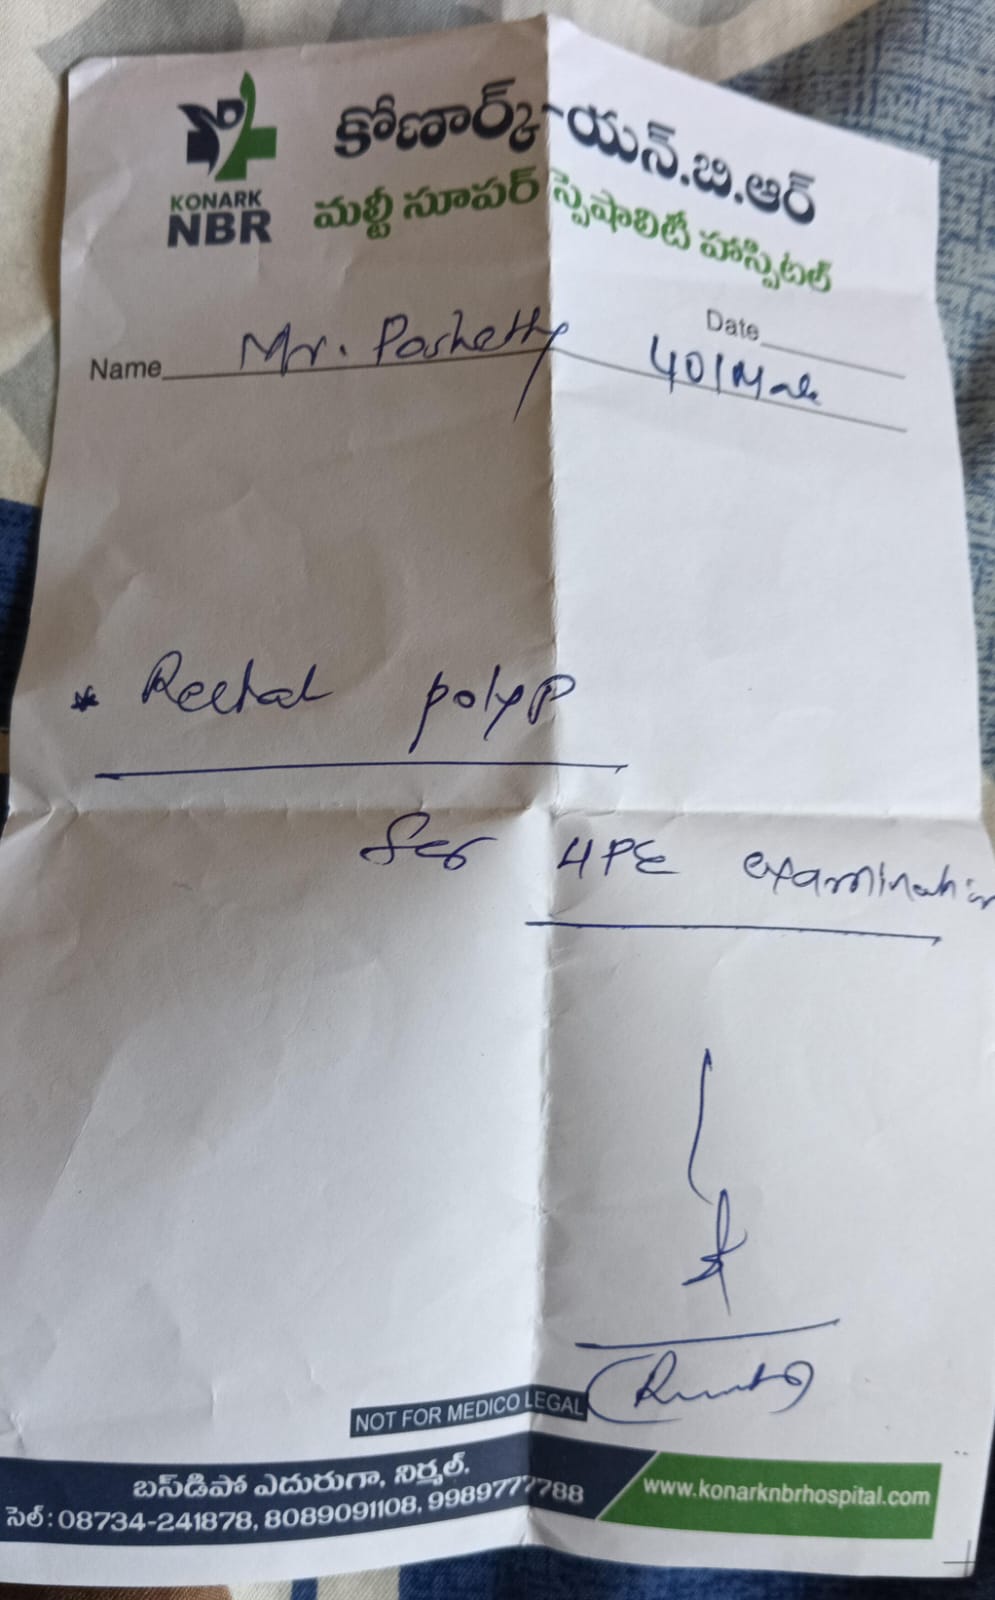 కోణార్క్-యన్.బి.ఆర్
మల్టీ సూపర్ స్పెషాలిటీ హాస్పిటల్
KONARK
NBR
Date
Name Mr. Poshetty 40/Male
* Rectal polyp
for HPE examination
NOT FOR MEDICO LEGAL
బస్‌డిపో ఎదురుగా, నిర్మల్.
సెల్ : 08734-241878, 8089091108, 9989777788
www.konarknbrhospital.com